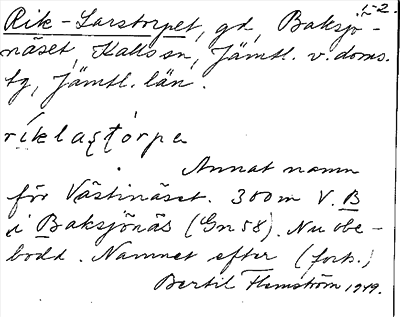 1-2.
Rik-Larstorpet, gd, Baksjö-
näset, Kalls sn, Jämtl. v. doms.
tg, Jämtl. län.
ríklaʂʈòrpe
Annat namn
för Västinäset. 300 m V. B
i Baksjönäs (Gn 58). Nu obe-
bodd. Namnet efter (forts.)
Bertil Flemström 1949.